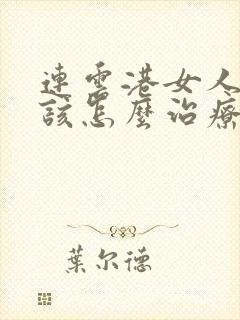 連雲港女人
該怎麼治療
葉尔德